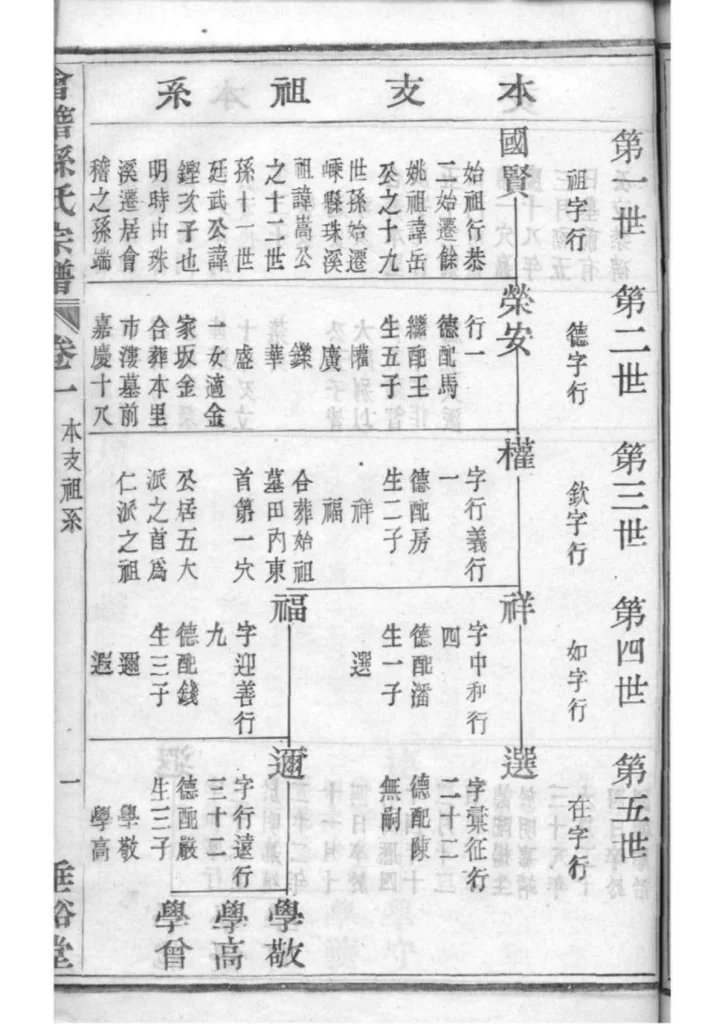 本支祖系
第一世
祖字行
國賢
始祖行恭
二始遷餘
姚祖諱岳
公之十九
世孫始遷
嵊縣珠溪
祖諱嵩公
之十二世
孫十一世
廷武公諱
鏗次子也
明時由珠
溪遷居會
稽之孫端
第二世
德字行
榮安
行一
德配馬
繼配王
生五子
權
廣
鑠
華
盛
一女適金
家坂金
合葬本里
市漊墓前
嘉慶十八
第三世
欽字行
權
字行義行
一
德配房
生二子
祥
福
合葬始祖
墓田內東
首第一穴
公居五大
派之首爲
仁派之祖
第四世
如字行
祥
字中和行
四
德配潘
生一子
選
福
字迎善行
九
德配錢
生三子
邇
遐
第五世
在字行
選
字彙征行
二十二
德配陳
無嗣
邇
字行遠行
三十二
德配嚴
生三子
學敬
學高
學敬
學高
學曾
會稽孫氏宗譜
卷一
本支祖系
一
垂裕堂